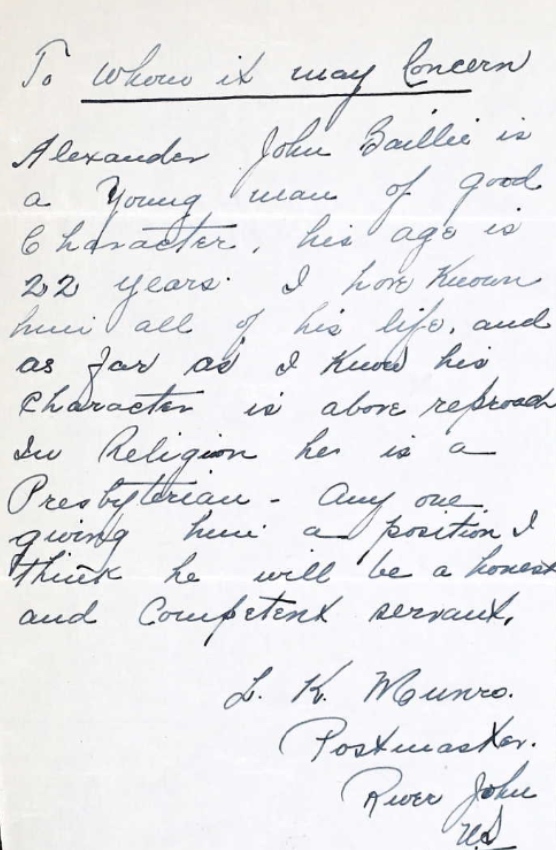 To Whom it may Concern
Alexander John Baillie is
a Young man of good
Character, his age is
22 years. I have Known
him all of his life, and
as far as I Know his
Character is above reproach
In Religion he is a
Presbyterian - Any one
giving him a position I
think he will be a honest
and Competent servant.
L. K. Munro.
Postmaster.
River John
N.S